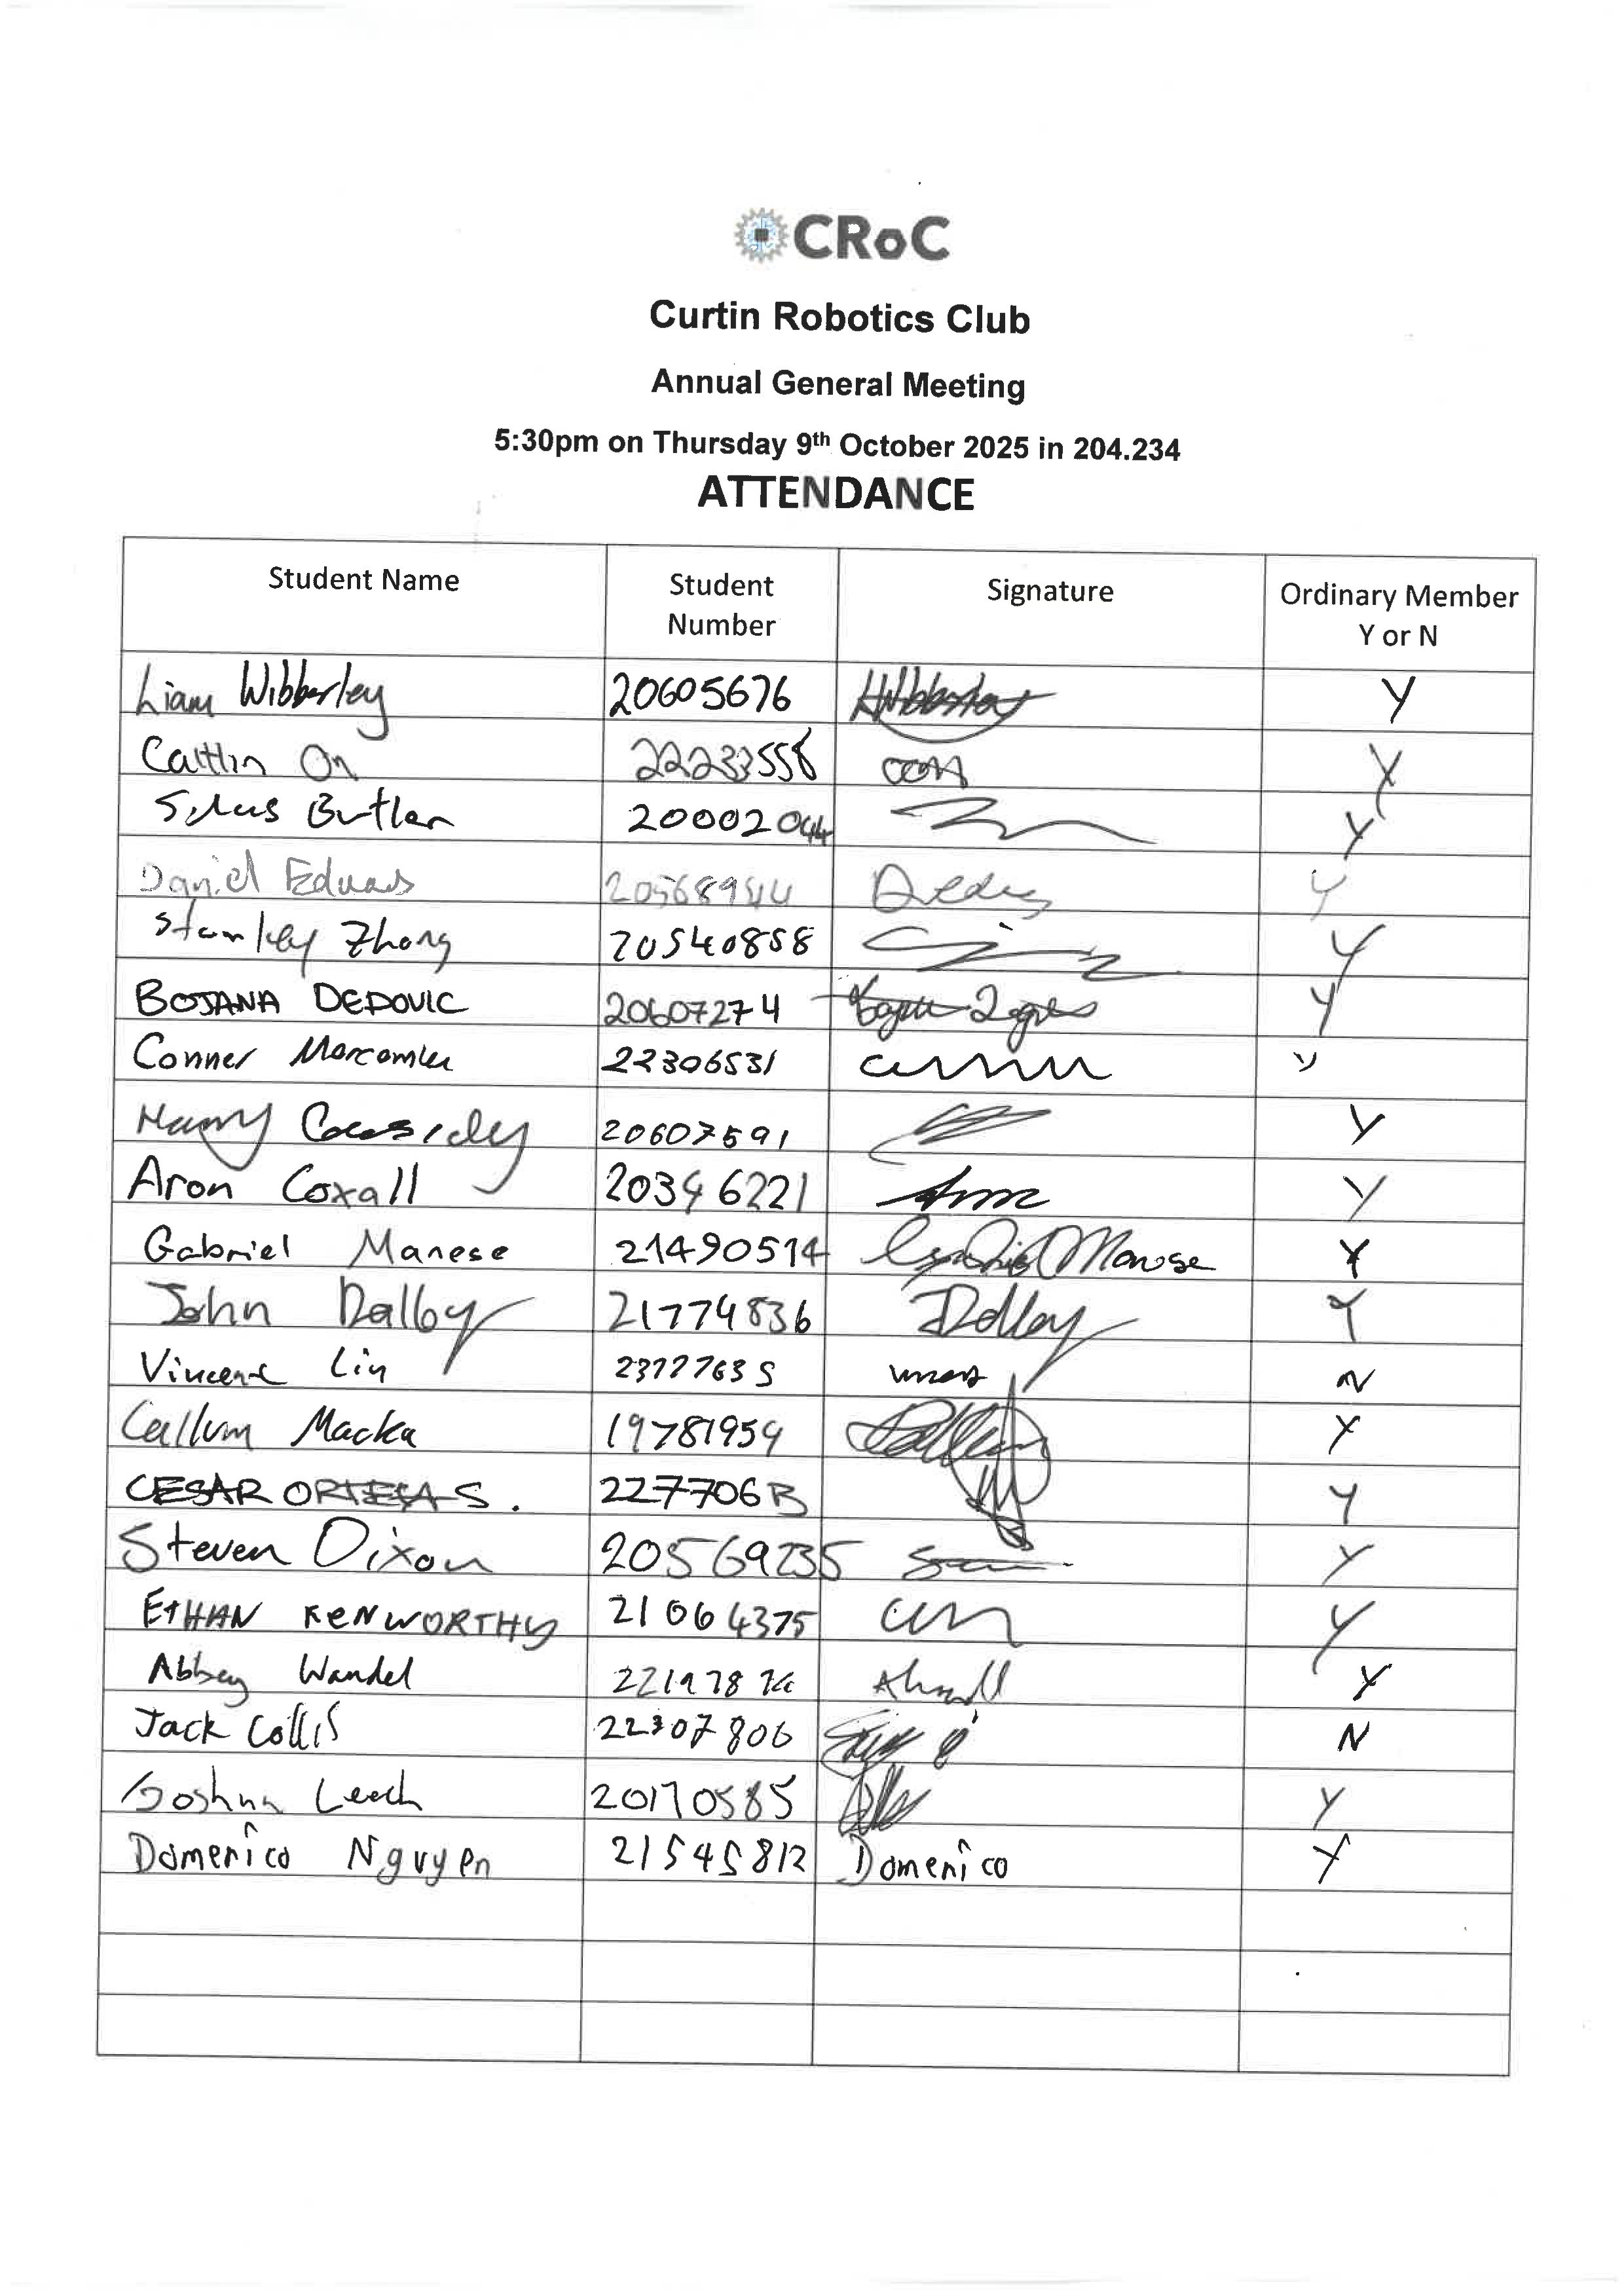 CRoC
Curtin Robotics Club
Annual General Meeting
5:30pm on Thursday 9th October 2025 in 204.234
ATTENDANCE
Student Name Student Number Signature Ordinary Member Y or N
Liam Wibberley 20605676 Y
Caitlin On Y
Silas Butler 20002044 Y
Daniel Y
Stanley Zhong 20540858 Y
BOJANA DEDOVIC 20607274 Y
Conner 22306531 Y
Harry Cassidy 20607591 Y
Aron Coxall 20346221 Y
Gabriel Manese 21490514 Gabriel Manese Y
John Dalby 21774836 JDalby Y
Vincent Lin 23777635 N
Callum Macka 19781954 Y
CESAR ORTEGA S. Y
Steven Dixon 20569235 Y
ETHAN KENWORTHY 21064375 Y
Abbey Wandel Y
Jack Collis 22307806 N
Joshua Leech 20170585 Y
Domenico Nguyen 21545812 Domenico Y